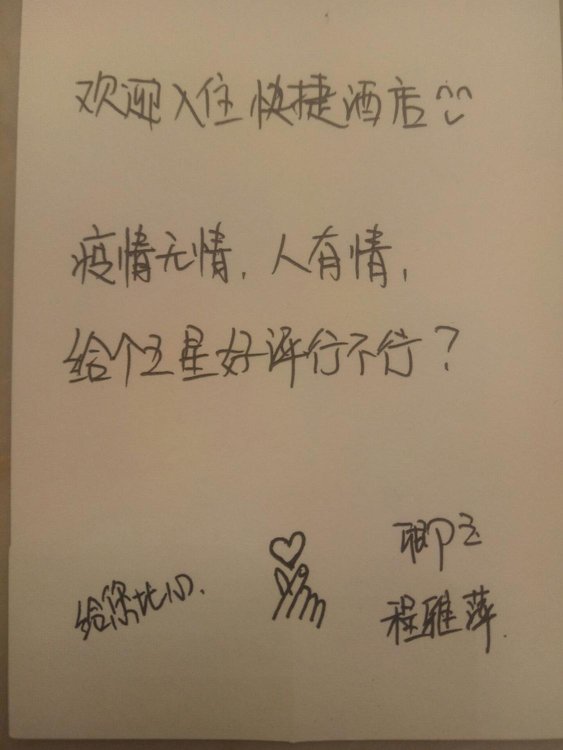 欢迎入住快捷酒店
疫情无情，人有情，
给个五星好评行不行？
给你比心.
程雅萍.